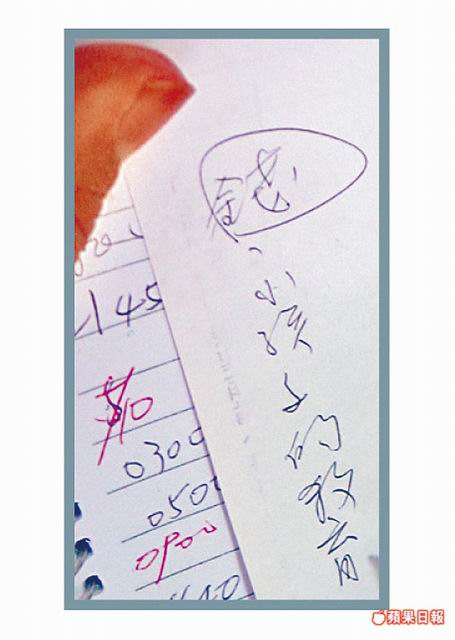 錢、小孩子的教育
145
0300
050
0900
蘋果日報